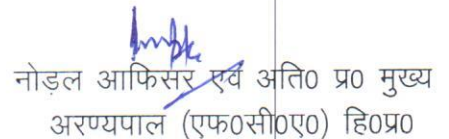 नोड़ल आफिसर एवं अति0 प्र0 मुख्य
अरण्यपाल (एफ0सी0ए0) हि0प्र0